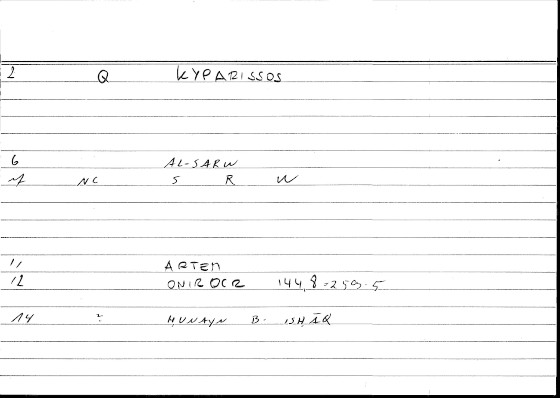 2 Q KYPARISSOS
6 AL-SARW
7 NC S R W
11 ARTEM
12 ONIROCR 144,8=259.5
14 : HUNAYN B. ISHĀQ